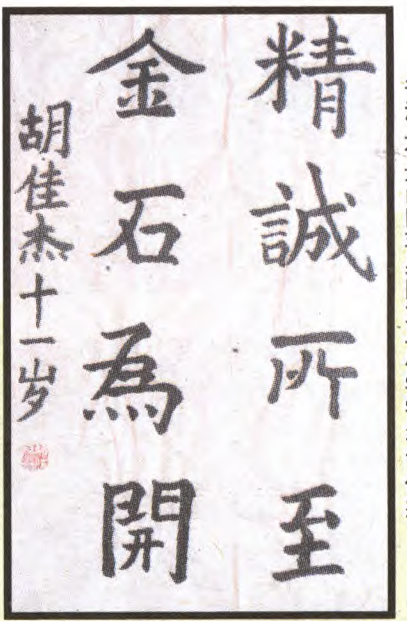 精誠所至
金石為開
胡佳杰十一岁